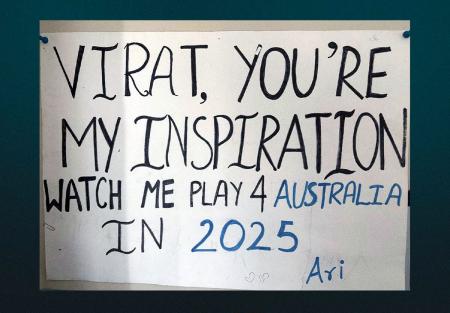 VIRAT, YOU'RE
MY INSPIRATION
WATCH ME PLAY 4 AUSTRALIA
IN 2025
Ari